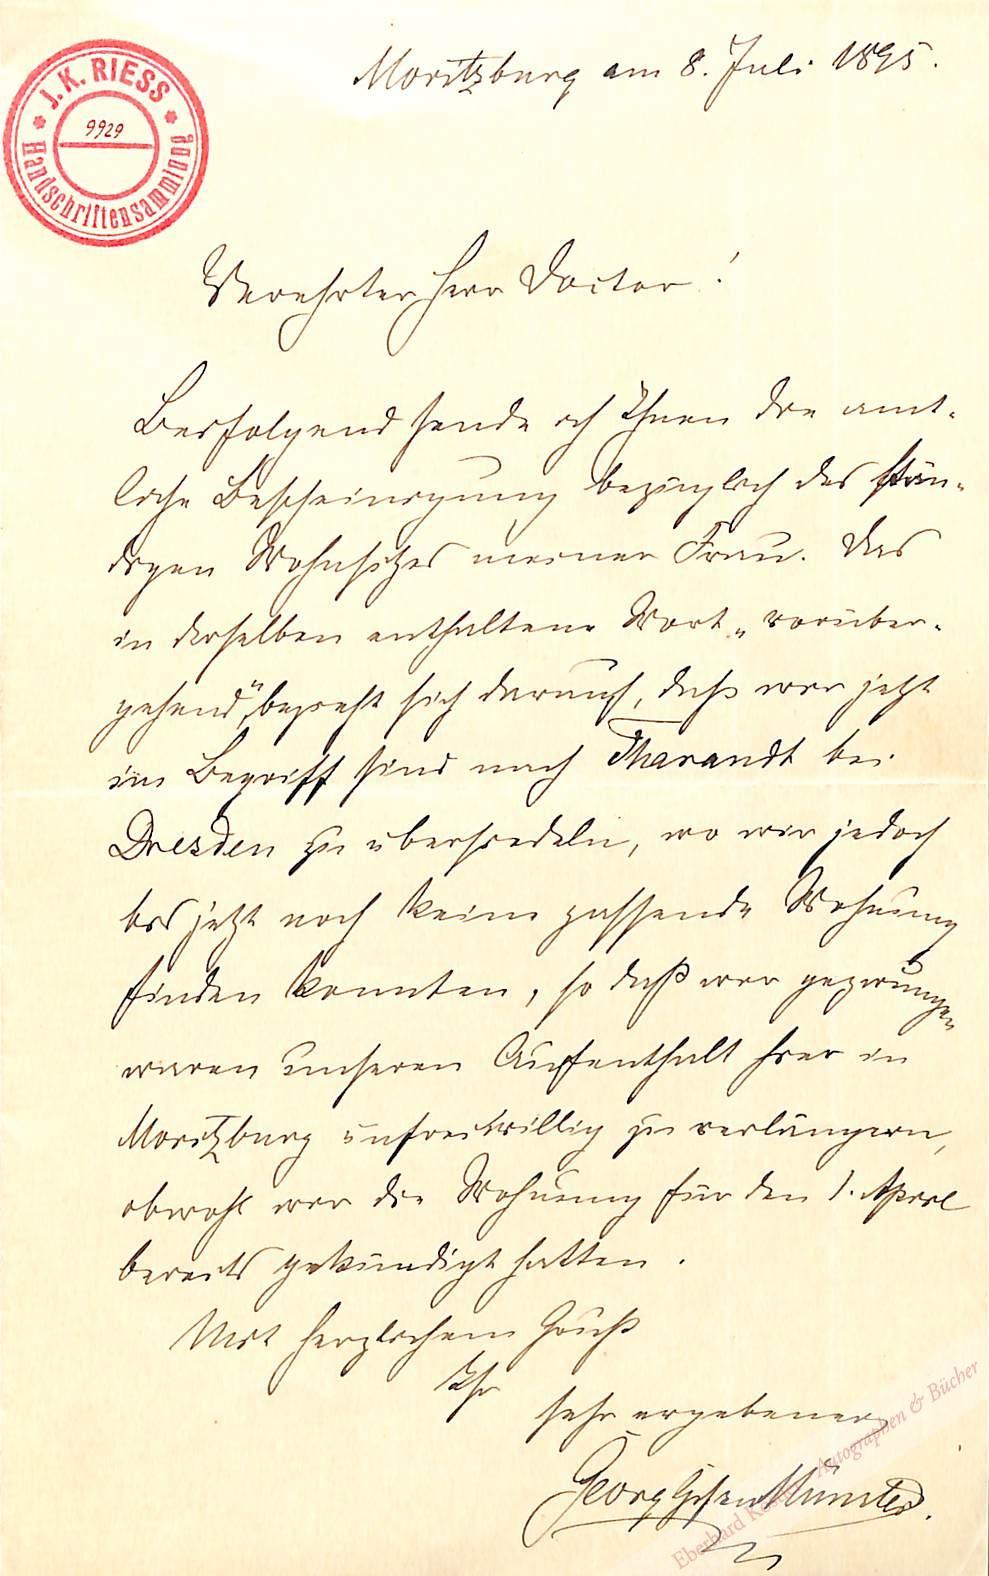 J. K. RIESS
9929
Handschriftensammlung
Moritzburg am 8. Juli 1895.
Verehrter Herr Doctor!
Beifolgend sende ich Ihnen die amt-
liche Bescheinigung bezüglich des stän-
digen Wohnsitzes meiner Frau. Das
in derselben enthaltene Wort „vorüber-
gehend“, bezieht sich darauf, daß wir jetzt
im Begriff sind nach Tharandt bei
Dresden zu übersiedeln, wo wir jedoch
bis jetzt noch keine passende Wohnung
finden konnten, so daß wir gezwungen
waren unseren Aufenthalt hier in
Moritzburg unfreiwillig zu verlängern,
obwohl wir die Wohnung für den 1. April
bereits gekündigt hatten.
Mit herzlichem Gruß
Ihr
sehr ergebener
Georg Münster.
Eberhard Autographen & Bücher